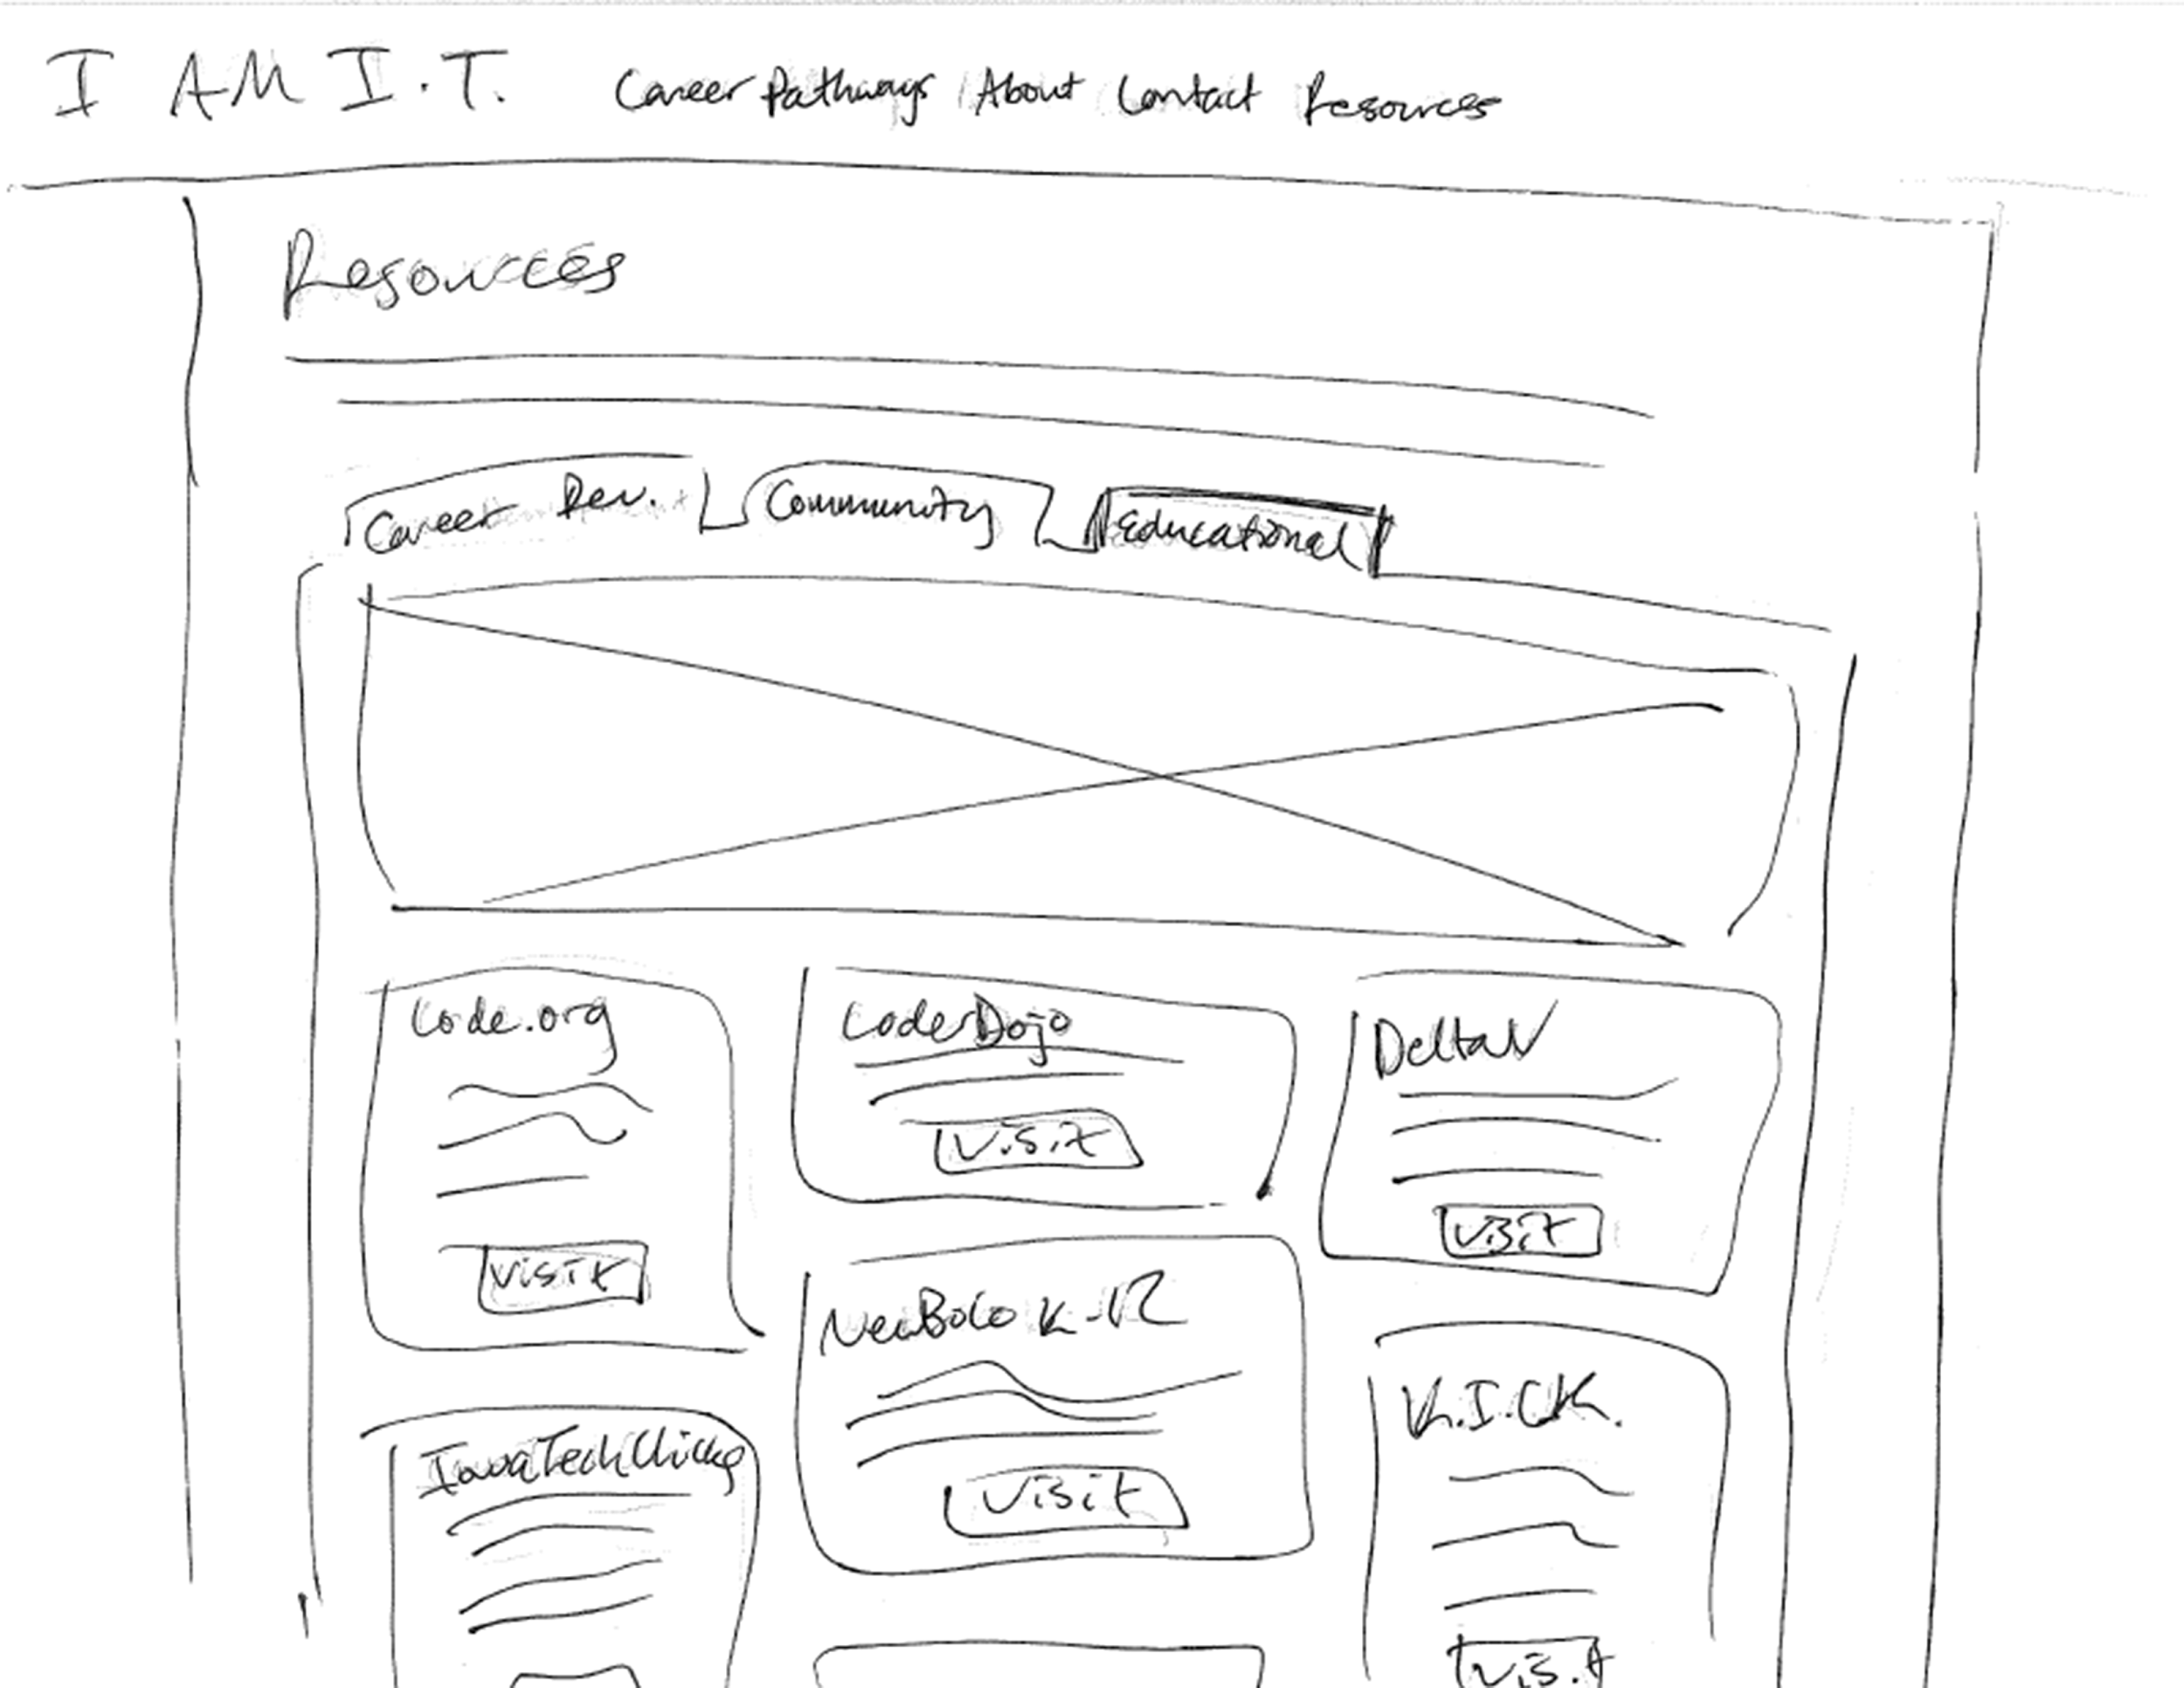 I AM I.T. Career Pathways About Contact Resources
Resources
Career Dev. Community Educational
Code.org
Visit
CoderDojo
Visit
DeltaV
Visit
NewBoCo K-12
Visit
IowaTechChicks
K.I.C.K.
Visit